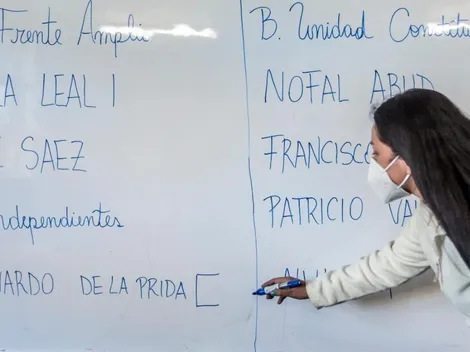 Frente Amplio
LA LEAL I
SAEZ
Independientes
NARDO DE LA PRIDA
B. Unidad Constitu
NOFAL ABUD
FRANCISCO
PATRICIO VA